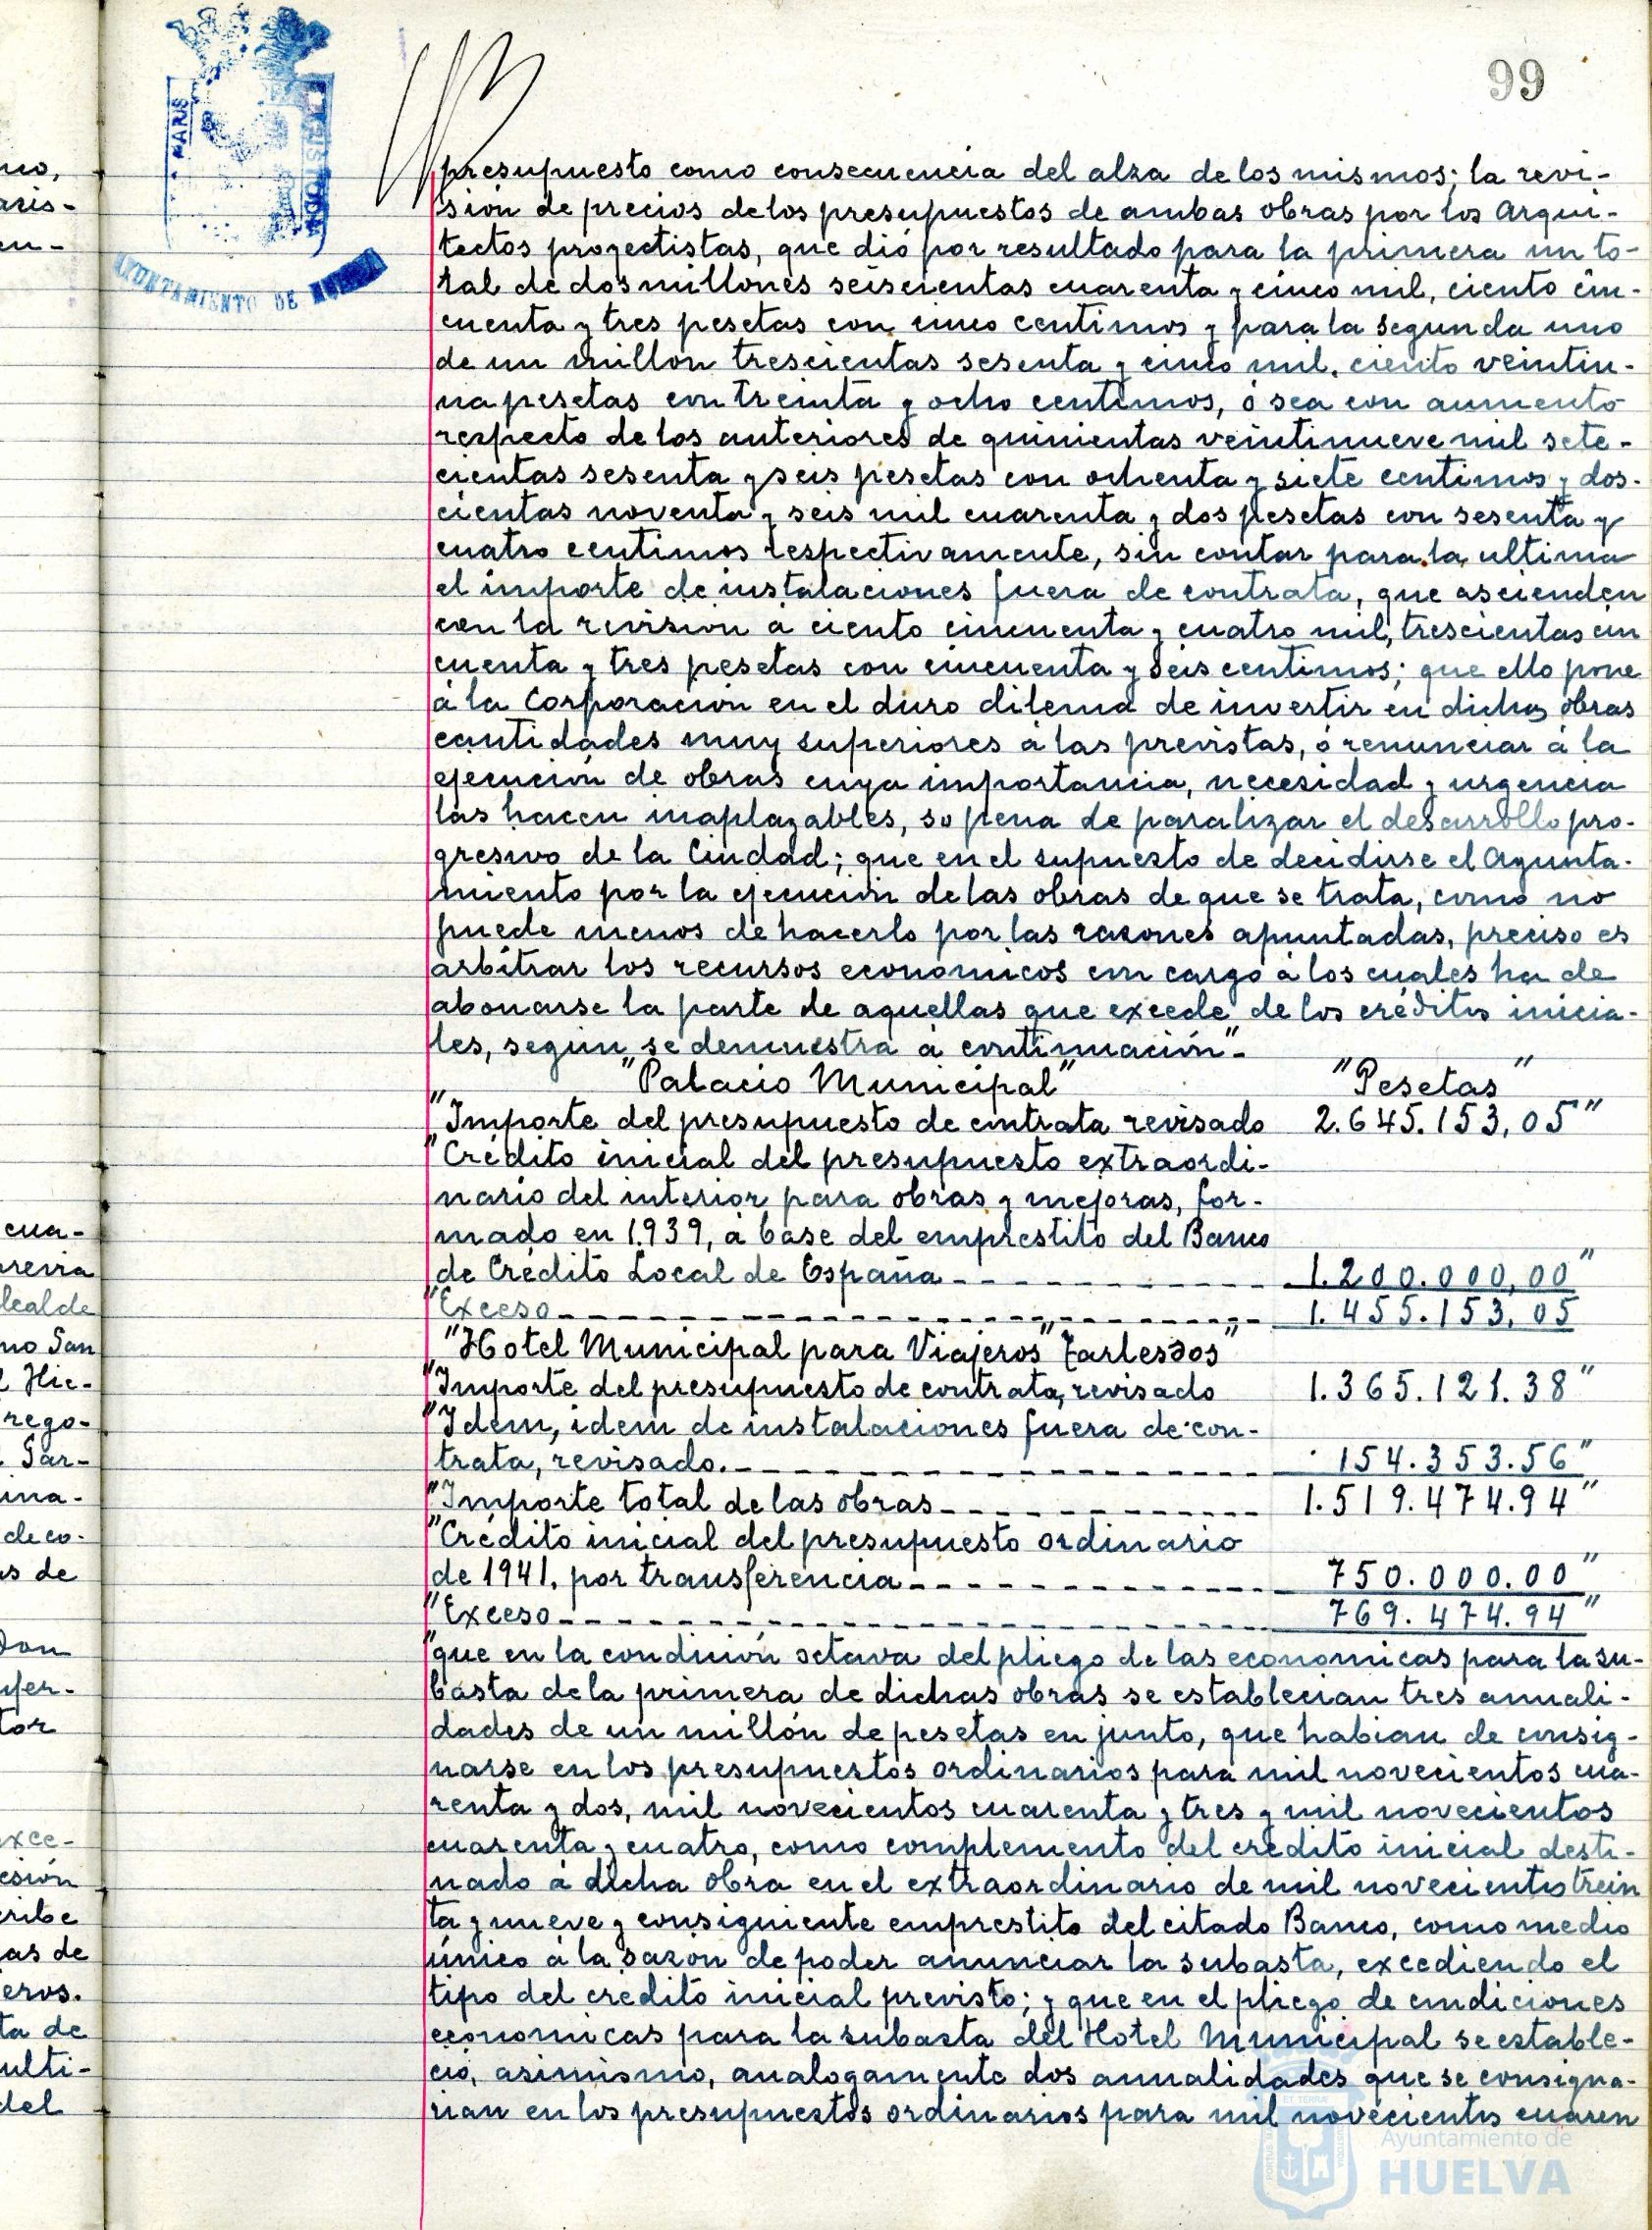 99
presupuesto como consecuencia del alza de los mismos; la revi-
sión de precios de los presupuestos de ambas obras por los Arqui-
tectos proyectistas, que dió por resultado para la primera un to-
tal de dos millones seiscientas cuarenta y cinco mil, ciento cin-
cuenta y tres pesetas con cinco centimos y para la segunda uno
de un millon trescientas sesenta y cinco mil, ciento veintiu-
na pesetas con treinta y ocho centimos, ó sea con aumento
respecto de los anteriores de quinientas veintinueve mil sete-
cientas sesenta y seis pesetas con ochenta y siete centimos y dos-
cientas noventa y seis mil cuarenta y dos pesetas con sesenta y
cuatro centimos respectivamente, sin contar para la ultima
el importe de instalaciones fuera de contrata, que ascienden
con la revision a ciento cincuenta y cuatro mil, trescientas cin
cuenta y tres pesetas con cincuenta y seis centimos; que ello pone
á la Corporación en el duro dilema de invertir en dichas obras
cantidades muy superiores á las previstas, ó renunciar á la
ejecución de obras cuya importancia, necesidad y urgencia
las hacen inaplazables, so pena de paralizar el desarrollo pro-
gresivo de la Ciudad; que en el supuesto de decidirse el Ayunta-
miento por la ejecución de las obras de que se trata, como no
puede menos de hacerlo por las razones apuntadas, preciso es
arbitrar los recursos economicos con cargo á los cuales ha de
abonarse la parte de aquellas que excede de los créditos inicia-
les, según se demuestra á continuación".-
"Palacio Municipal" "Pesetas"
"Importe del presupuesto de contrata revisado 2.645.153,05"
"Crédito inicial del presupuesto extraordi-
nario del interior para obras y mejoras, for-
mado en 1.939, á base del emprestito del Banco
de Crédito Local de España 1.200.000,00"
"Exceso 1.455.153,05
"Hotel Municipal para Viajeros "Tartessos"
"Importe del presupuesto de contrata, revisado 1.365.121.38"
"Idem, idem de instalaciones fuera de con-
trata, revisado. 154.353.56"
"Importe total de las obras 1.519.474.94"
"Crédito inicial del presupuesto ordinario
de 1941, por transferencia 750.000.00"
"Exceso 769.474.94"
"que en la condición octava del pliego de las economicas para la su-
basta de la primera de dichas obras se establecian tres anuali-
dades de un millón de pesetas en junto, que habian de consig-
narse en los presupuestos ordinarios para mil novecientos cua-
renta y dos, mil novecientos cuarenta y tres y mil novecientos
cuarenta y cuatro, como complemento del crédito inicial desti-
nado á dicha obra en el extraordinario de mil novecientos trein
ta y nueve y consiguiente emprestito del citado Banco, como medio
único á la sazon de poder anunciar la subasta, excediendo el
tipo del credito inicial previsto; y que en el pliego de condiciones
economicas para la subasta del Hotel Municipal se estable-
ció, asimismo, analogamente dos anualidades que se consigna-
rian en los presupuestos ordinarios para mil novecientos cuaren
AYUNTAMIENTO DE HUELVA
Ayuntamiento de
HUELVA